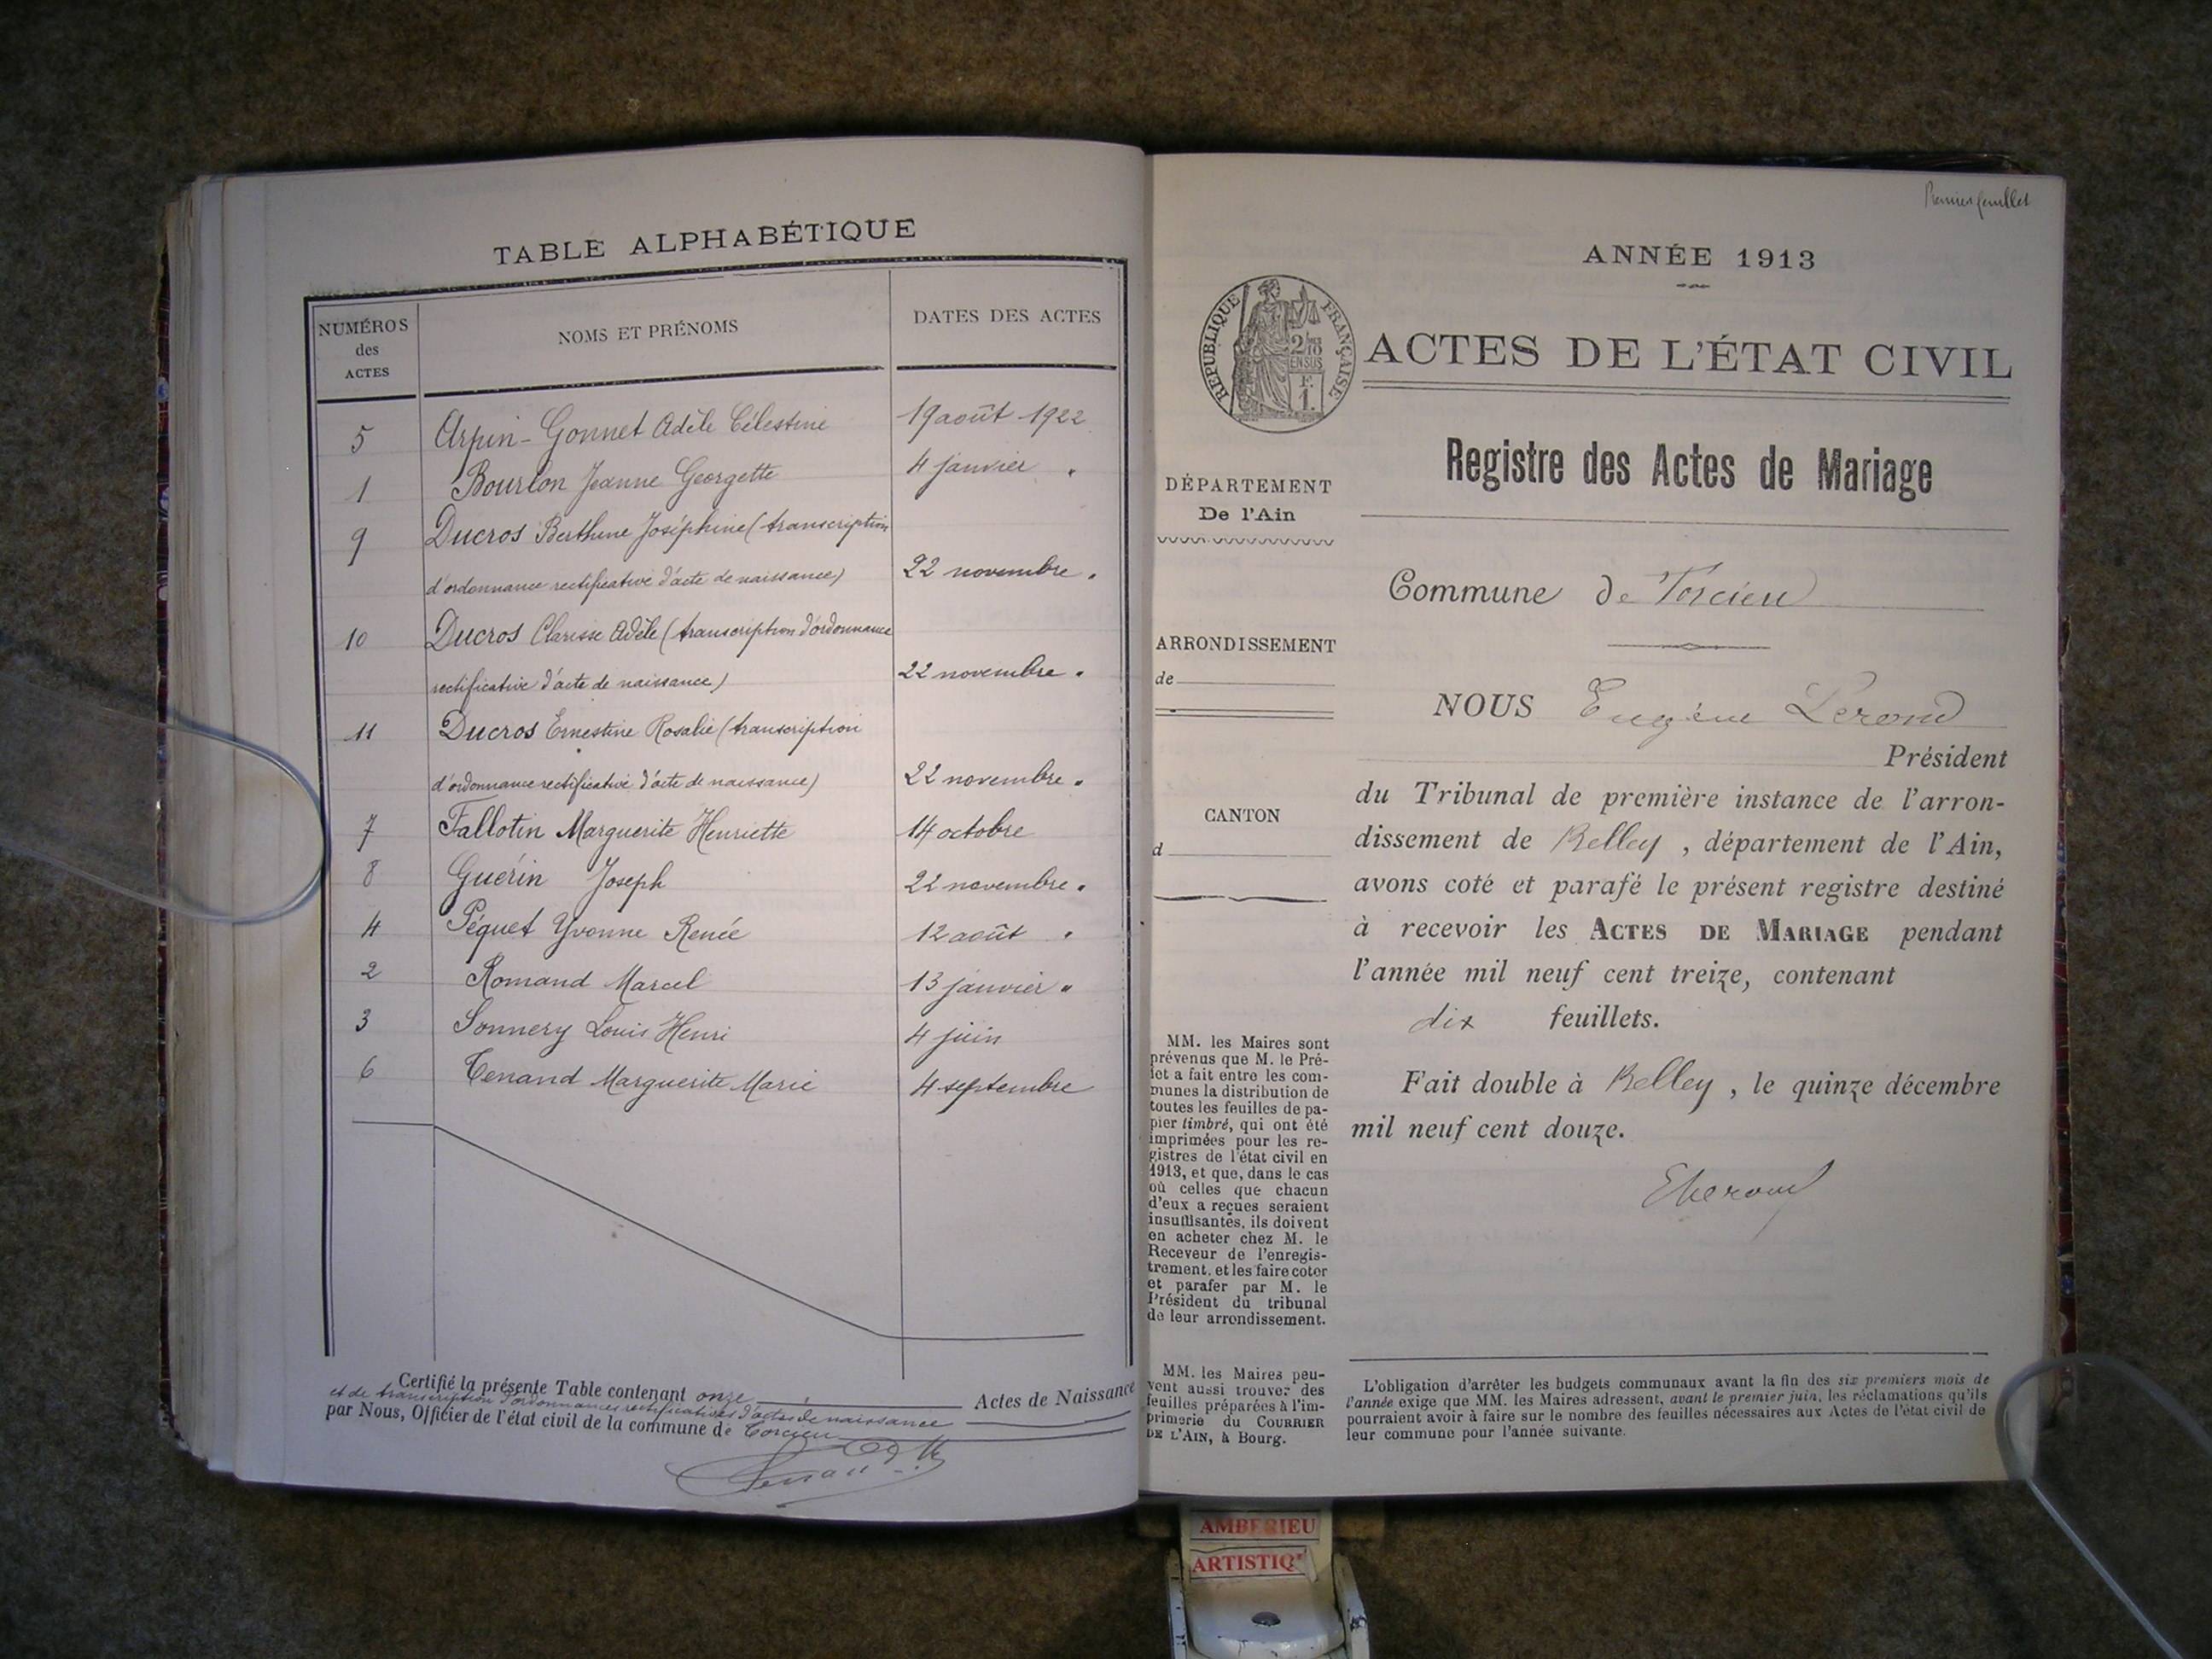 TABLE ALPHABÉTIQUE
NUMÉROS des ACTES
NOMS ET PRÉNOMS
DATES DES ACTES
5 Arpin-Gonnet Adèle Célestine 19 août 1922
1 Bourlon Jeanne Georgette 4 janvier "
9 Ducros Berthine Joséphine (transcription
d'ordonnance rectificative d'acte de naissance) 22 novembre "
10 Ducros Clarisse Adèle (transcription d'ordonnance
rectificative d'acte de naissance) 22 novembre "
11 Ducros Ernestine Rosalie (transcription
d'ordonnance rectificative d'acte de naissance) 22 novembre "
7 Fallotin Marguerite Henriette 14 octobre
8 Guérin Joseph 22 novembre "
4 Péquet Yvonne Renée 12 août "
2 Romand Marcel 13 janvier "
3 Sonnery Louis Henri 4 juin
6 Tenand Marguerite Marie 4 septembre
Certifié la présente Table contenant onze Actes de Naissance
et de transcription d'ordonnances rectificatives d'actes de naissance
par Nous, Officier de l'état civil de la commune de Torcieu
Premier feuillet
ANNÉE 1913
RÉPUBLIQUE FRANÇAISE
2/10 EN SUS
F. 1.
ACTES DE L'ÉTAT CIVIL
Registre des Actes de Mariage
DÉPARTEMENT
De l'Ain
ARRONDISSEMENT
de
CANTON
d
MM. les Maires sont
prévenus que M. le Pré-
fet a fait entre les com-
munes la distribution de
toutes les feuilles de pa-
pier timbré, qui ont été
imprimées pour les re-
gistres de l'état civil en
1913, et que, dans le cas
où celles que chacun
d'eux a reçues seraient
insuffisantes, ils doivent
en acheter chez M. le
Receveur de l'enregis-
trement, et les faire coter
et parafer par M. le
Président du tribunal
de leur arrondissement.
MM. les Maires peu-
vent aussi trouver des
feuilles préparées à l'im-
primerie du COURRIER
DE L'AIN, à Bourg.
Commune de Torcieu
NOUS Eugène Lerond
Président
du Tribunal de première instance de l'arron-
dissement de Belley, département de l'Ain,
avons coté et parafé le présent registre destiné
à recevoir les ACTES DE MARIAGE pendant
l'année mil neuf cent treize, contenant
dix feuillets.
Fait double à Belley, le quinze décembre
mil neuf cent douze.
ELerond
L'obligation d'arrêter les budgets communaux avant la fin des six premiers mois de
l'année exige que MM. les Maires adressent, avant le premier juin, les réclamations qu'ils
pourraient avoir à faire sur le nombre des feuilles nécessaires aux Actes de l'état civil de
leur commune pour l'année suivante.
AMBERIEU
ARTISTIQ